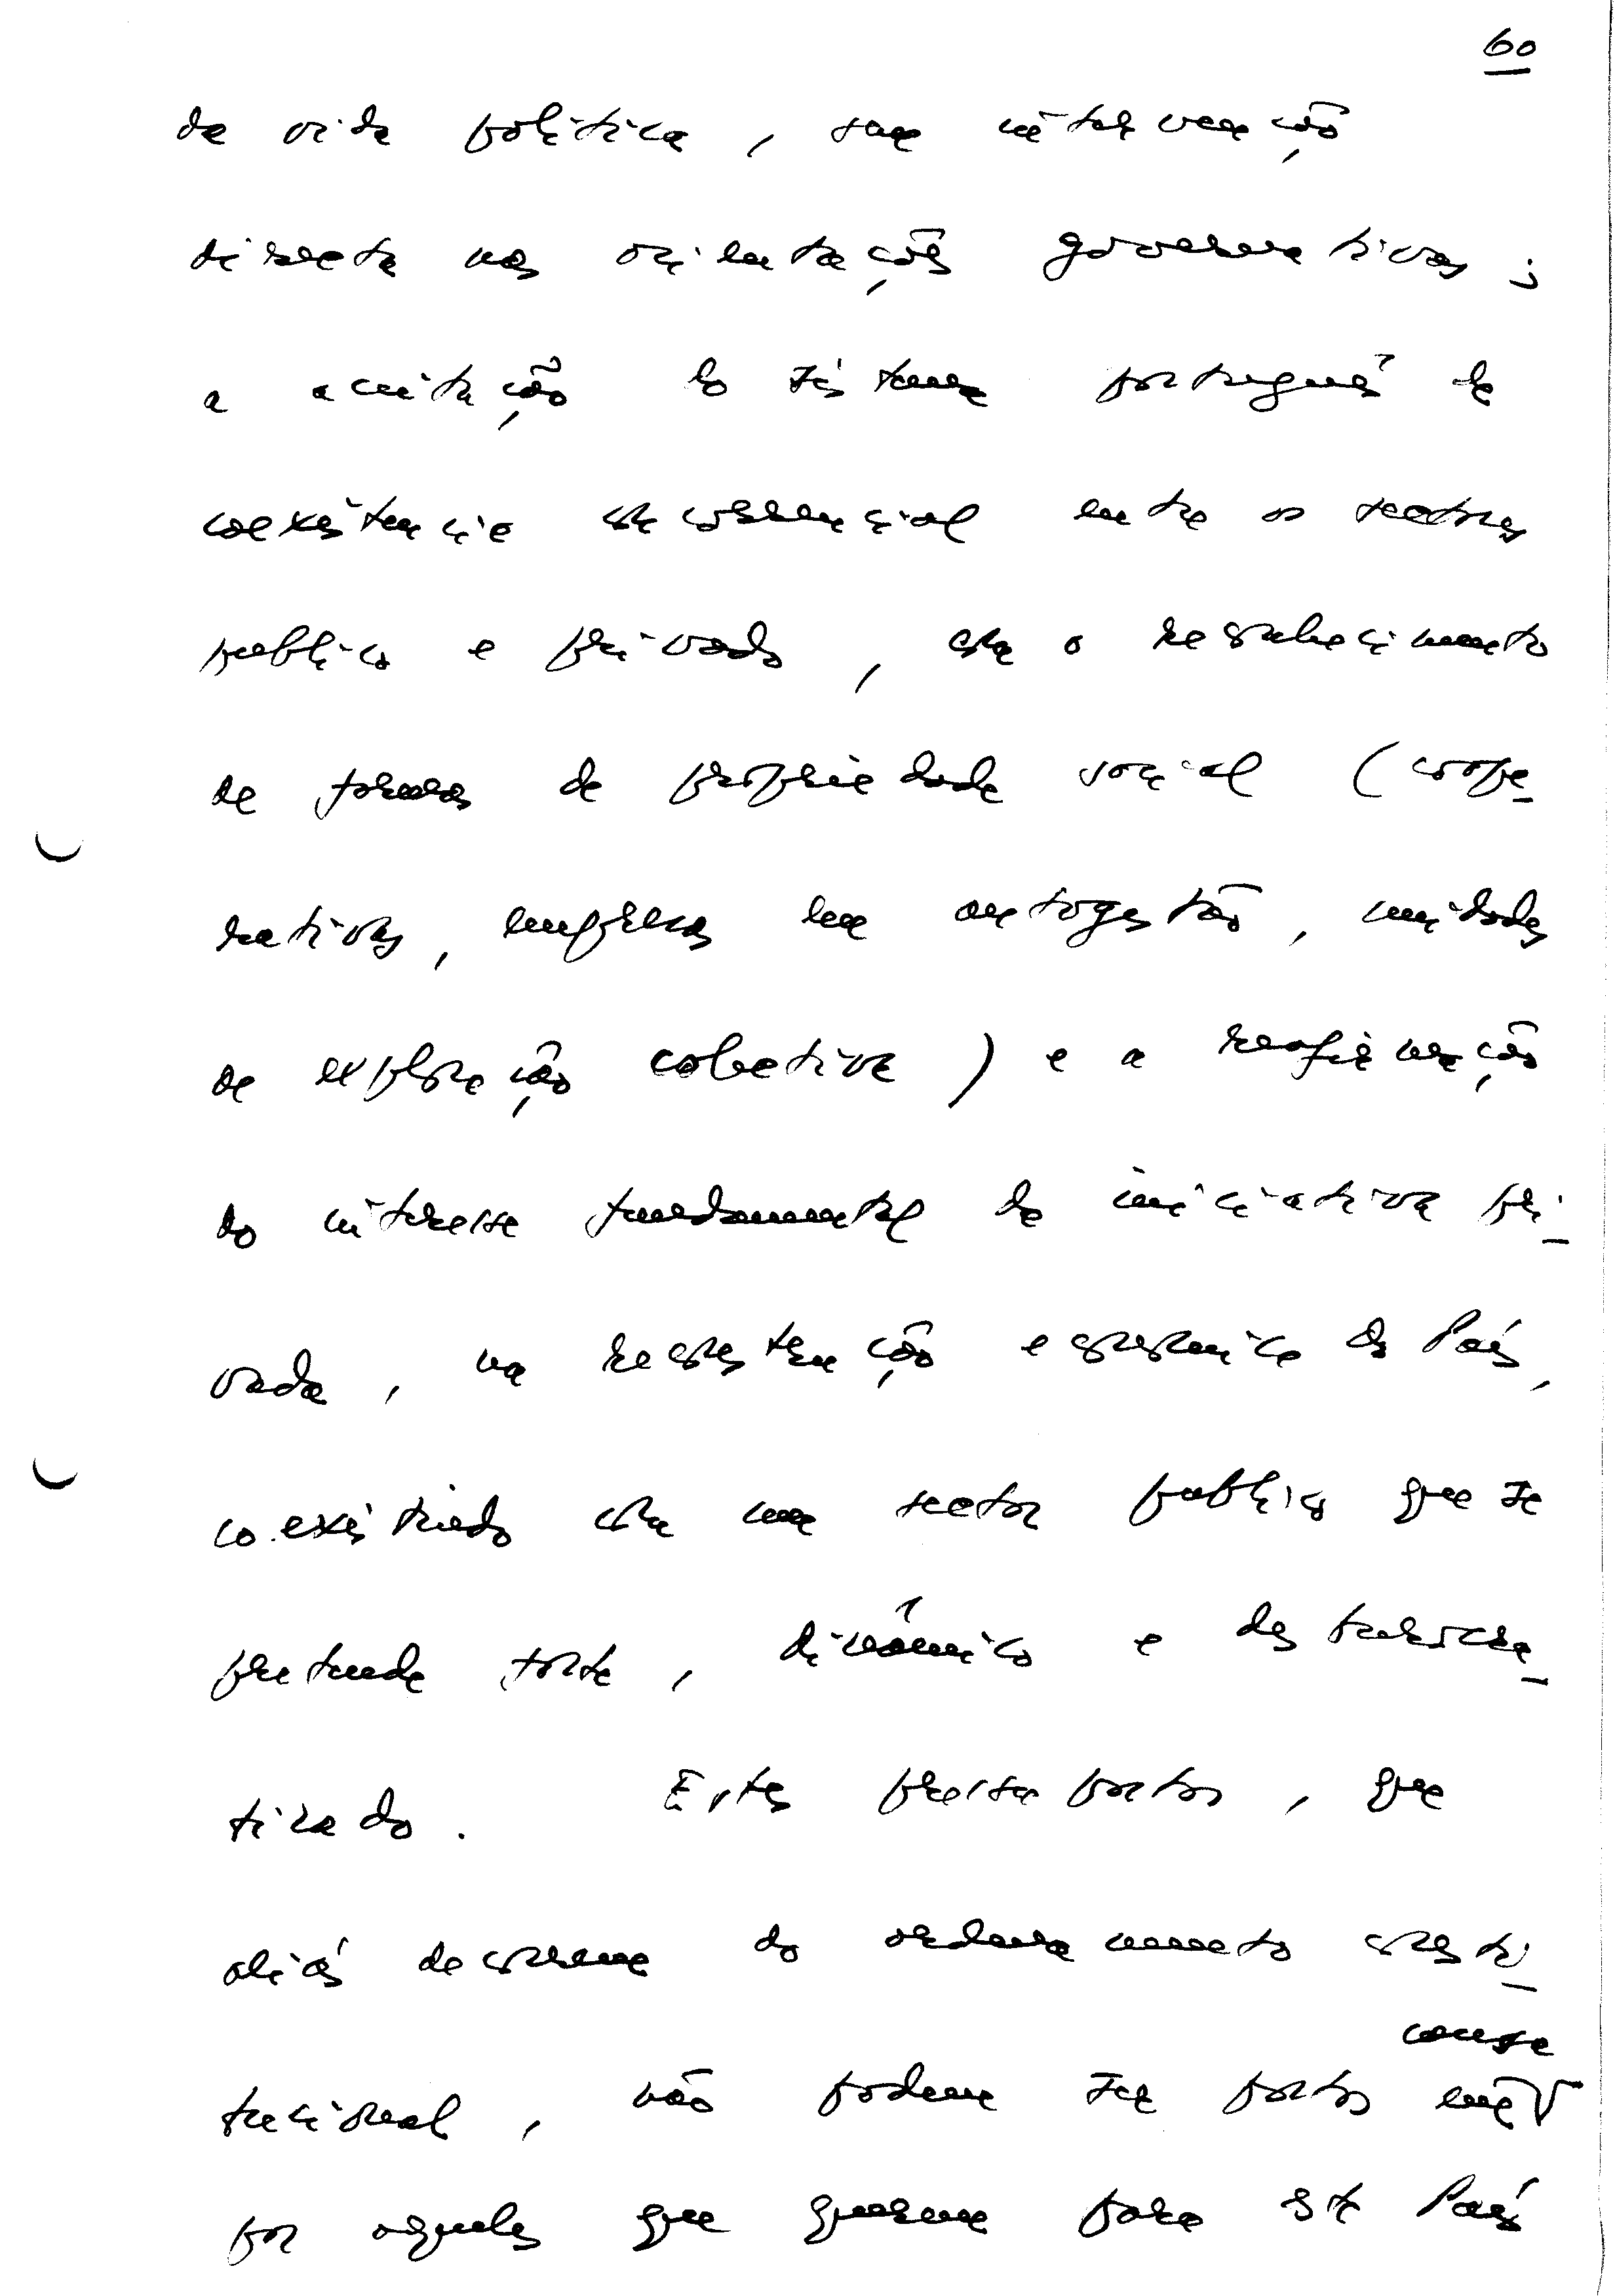 60
da vida política, sem intervenção
directa nas orientações governativas;
a aceitação do sistema português de
coexistência concorrencial entre os sectores
publico e privado, com o reconhecimento
de formas de propriedade social (coope-
rativas, empresas em autogestão, unidades
de exploração colectiva) e a reafirmação
do interesse fundamental da iniciativa pri-
vada, na reconstrução economica do País,
coexistindo com um sector publico que se
pretende forte, dinâmico e desburocra-
tizado. Estes pressupostos, que
aliás decorrem do ordenamento consti-
causa
tucional, não podem ser postos em
por aqueles que querem para este País